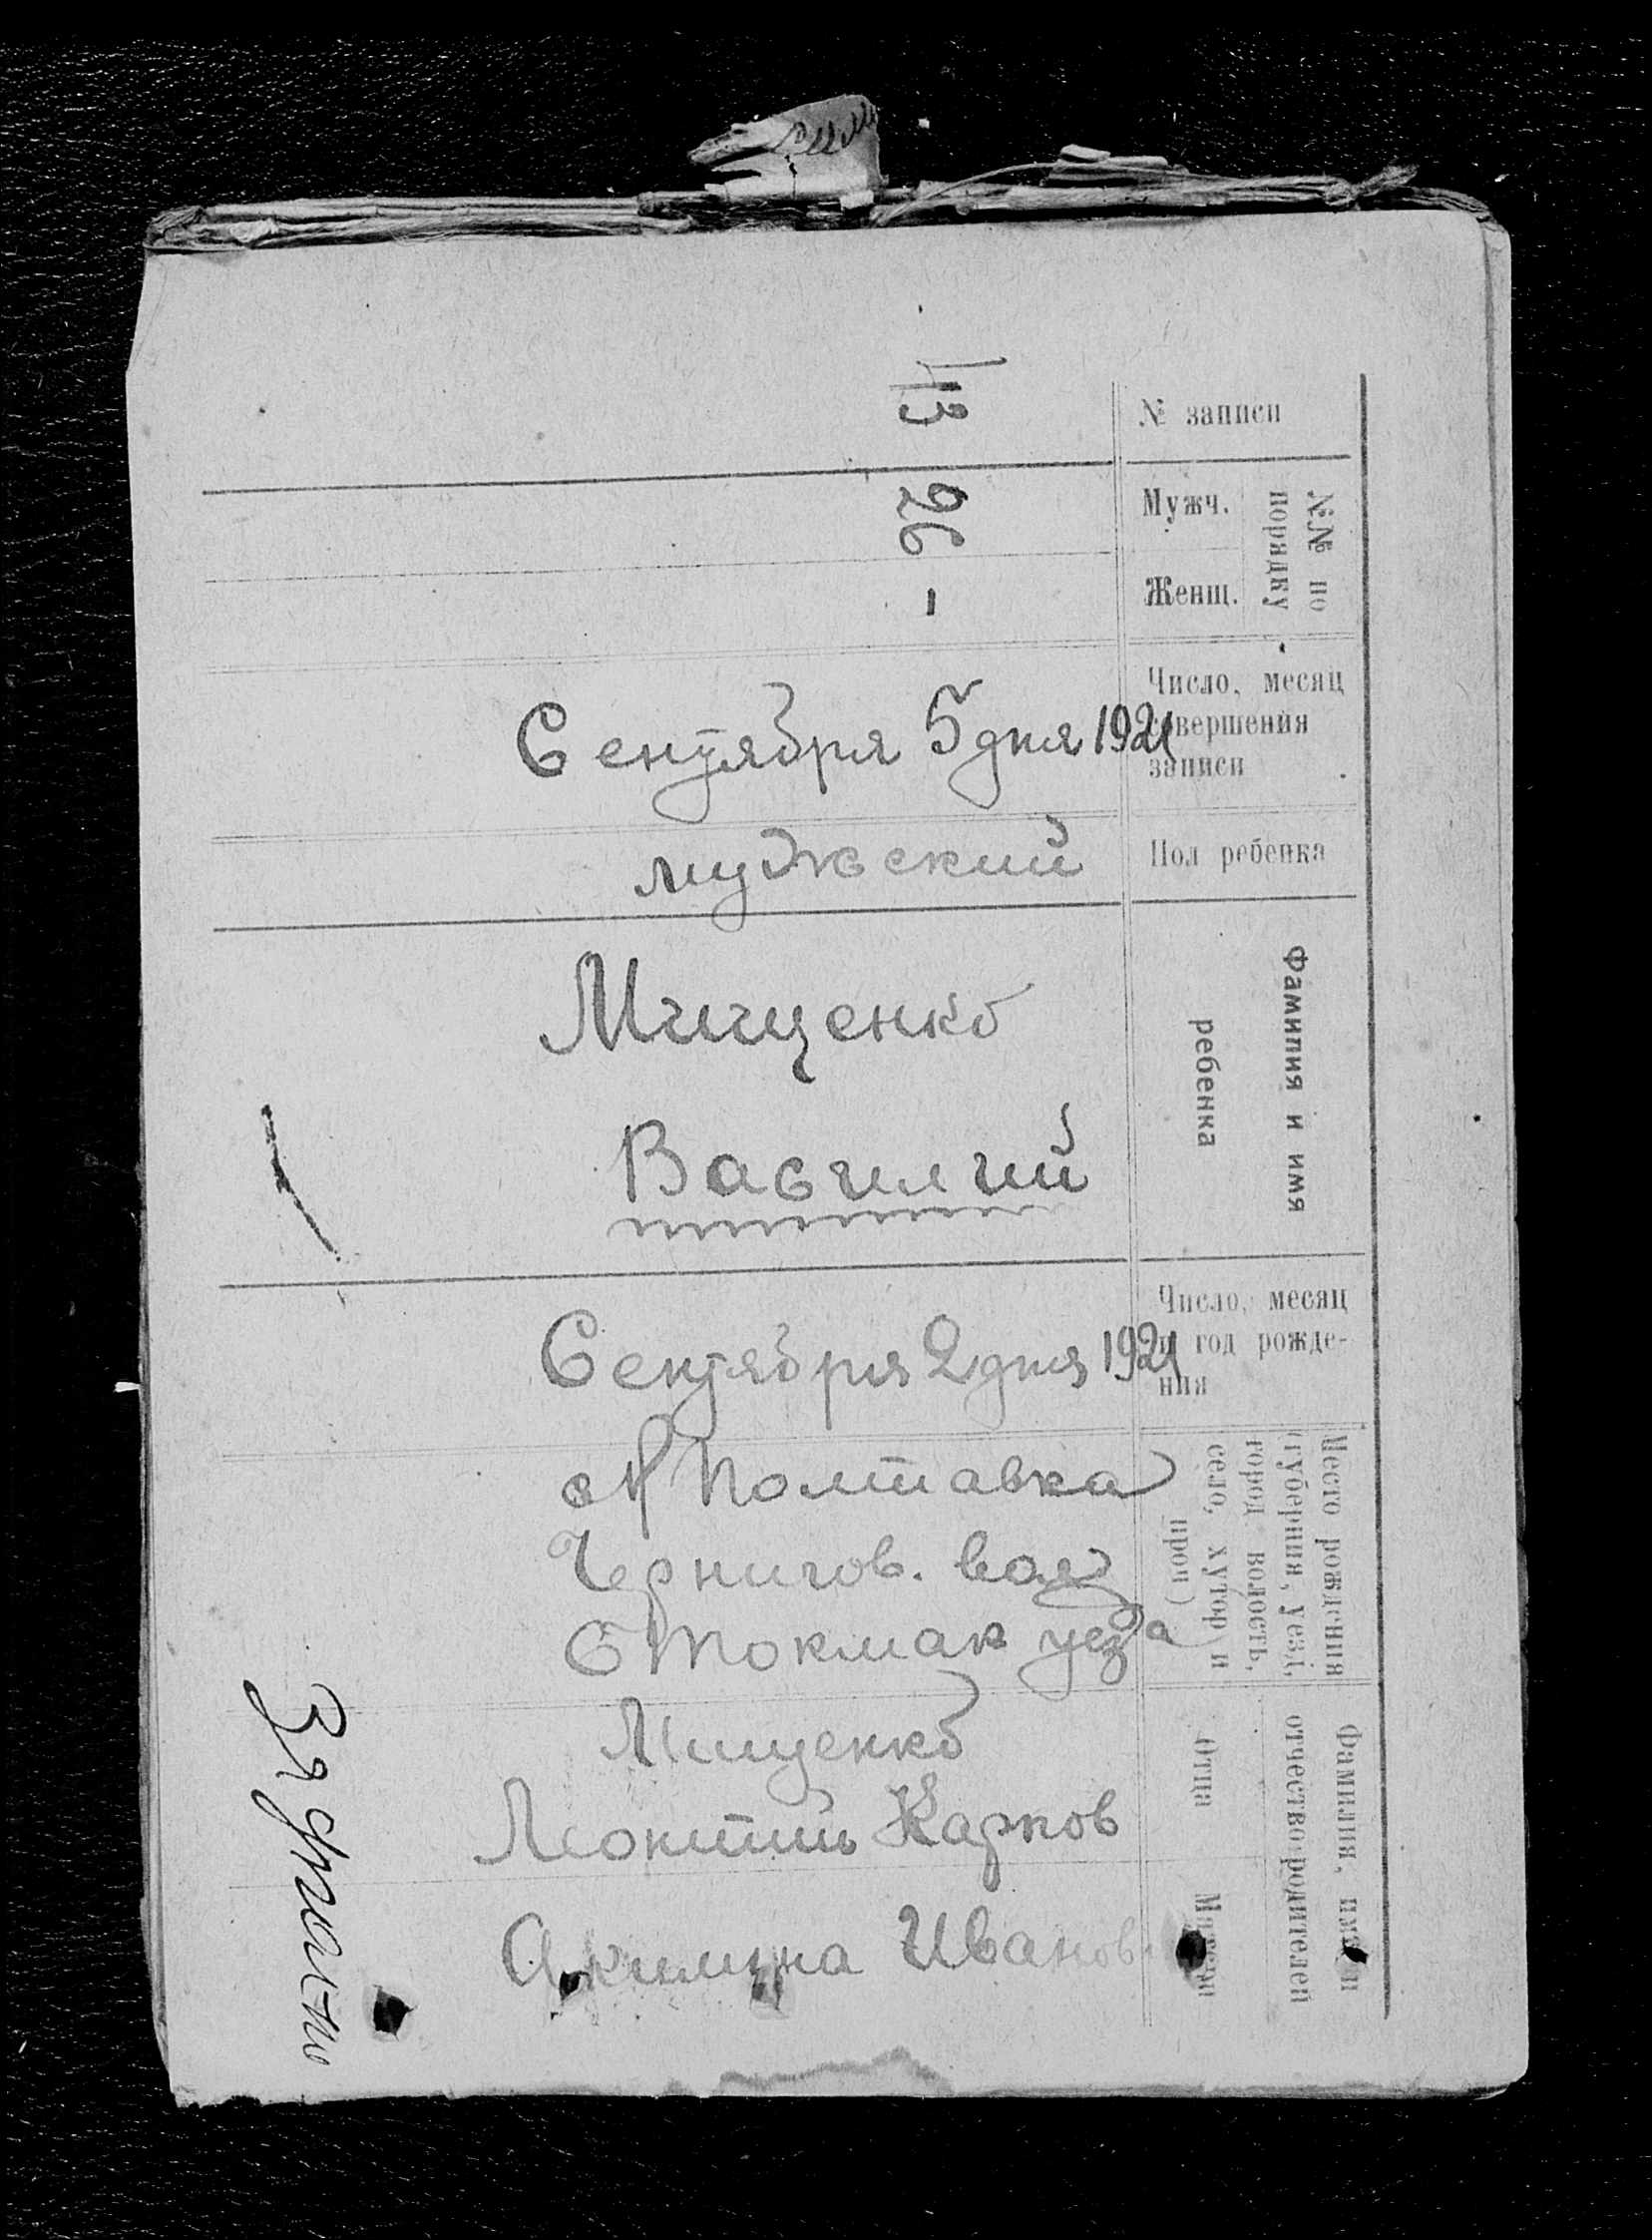 № записи
43
№№ по
порядку
Мужч.
26
Женщ.
-
Число, месяц
совершения
записи
Сентября 5 дня 1921
Пол ребенка
мужский
Фамилия и имя
ребенка
Мищенко
Василий
Число, месяц
и год рожде-
ния
Сентября 2 дня 1921
Место рождения
(губерния, уезд,
город, волость,
село, хутор и
проч)
с Н Полтавка
Чернигов. вол
Б Токмак уезда
Фамилия, имя и
отчество родителей
Отца
Мищенко
Леонтий Карпов
Матери
Акилина Иванов